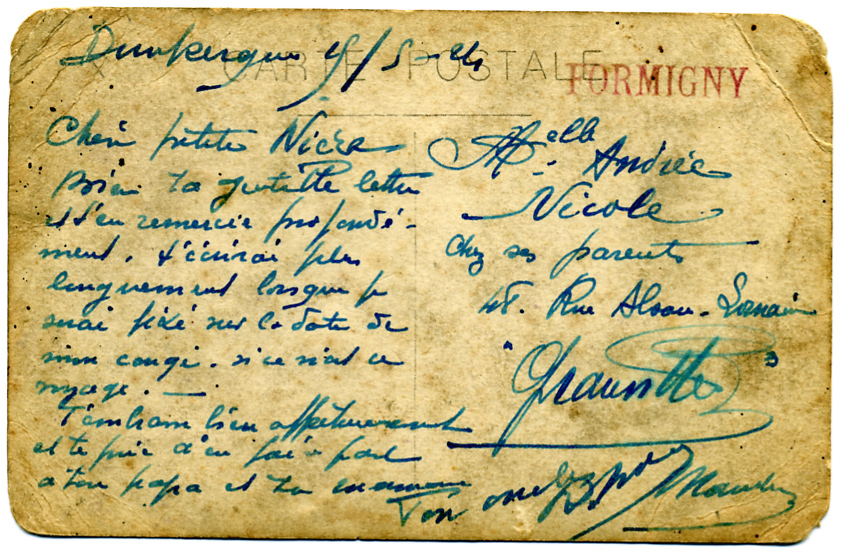 Dunkerque 5/5-24
CARTE POSTALE
FORMIGNY
Chère petite Nièce
ta gentille lettre
et t'en remercie profondé-
ment. t'écrirai plus
longuement lorsque je
serai fixé sur la date de
mon congé. ce
voyage. —
T'embrasse bien affectueusement
et te prie d'en faire part
à ton papa et ta maman
Ton oncle
Melle Andrée
Nicole
chez ses parents
48. Rue Alsace-Lorraine